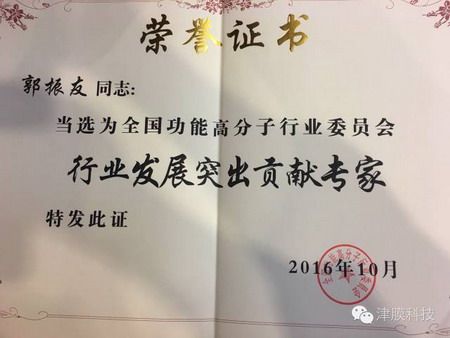 荣誉证书
郭振友同志:
当选为全国功能高分子行业委员会
行业发展突出贡献专家
特发此证
2016年10月
全国功能高分子行业委员会
津膜科技